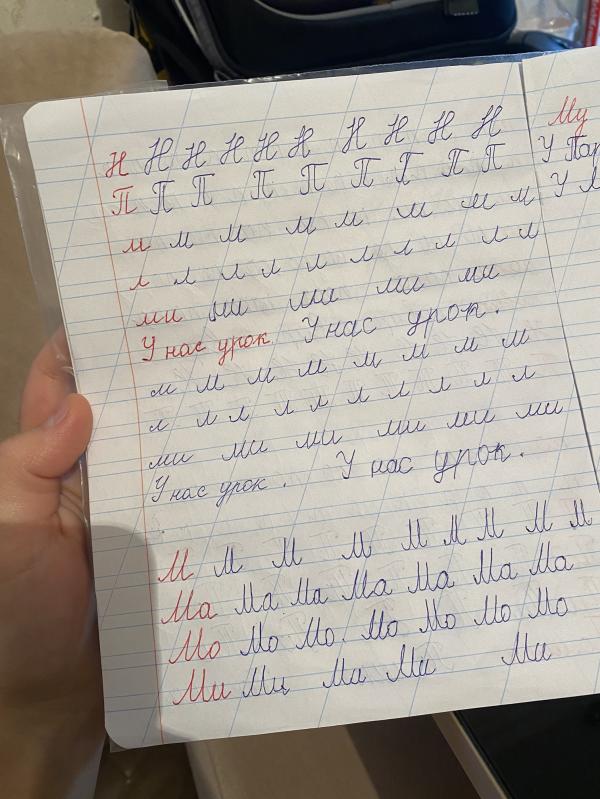 Н Н Н Н Н Н Н Н Н Н
П П П П П П П П П
м м м м м м м м
л л л л л л л л л л
ми ми ми ми ми
У нас урок У нас урок.
м м м м м м м м
л л л л л л л л л
ми ми ми ми ми ми
У нас урок. У нас урок.
М М М М М М М М М
Ма Ма Ма Ма Ма Ма Ма
Мо Мо Мо. Мо Мо Мо Мо
Ми Ми Ми Ми Ми
Му
У
У